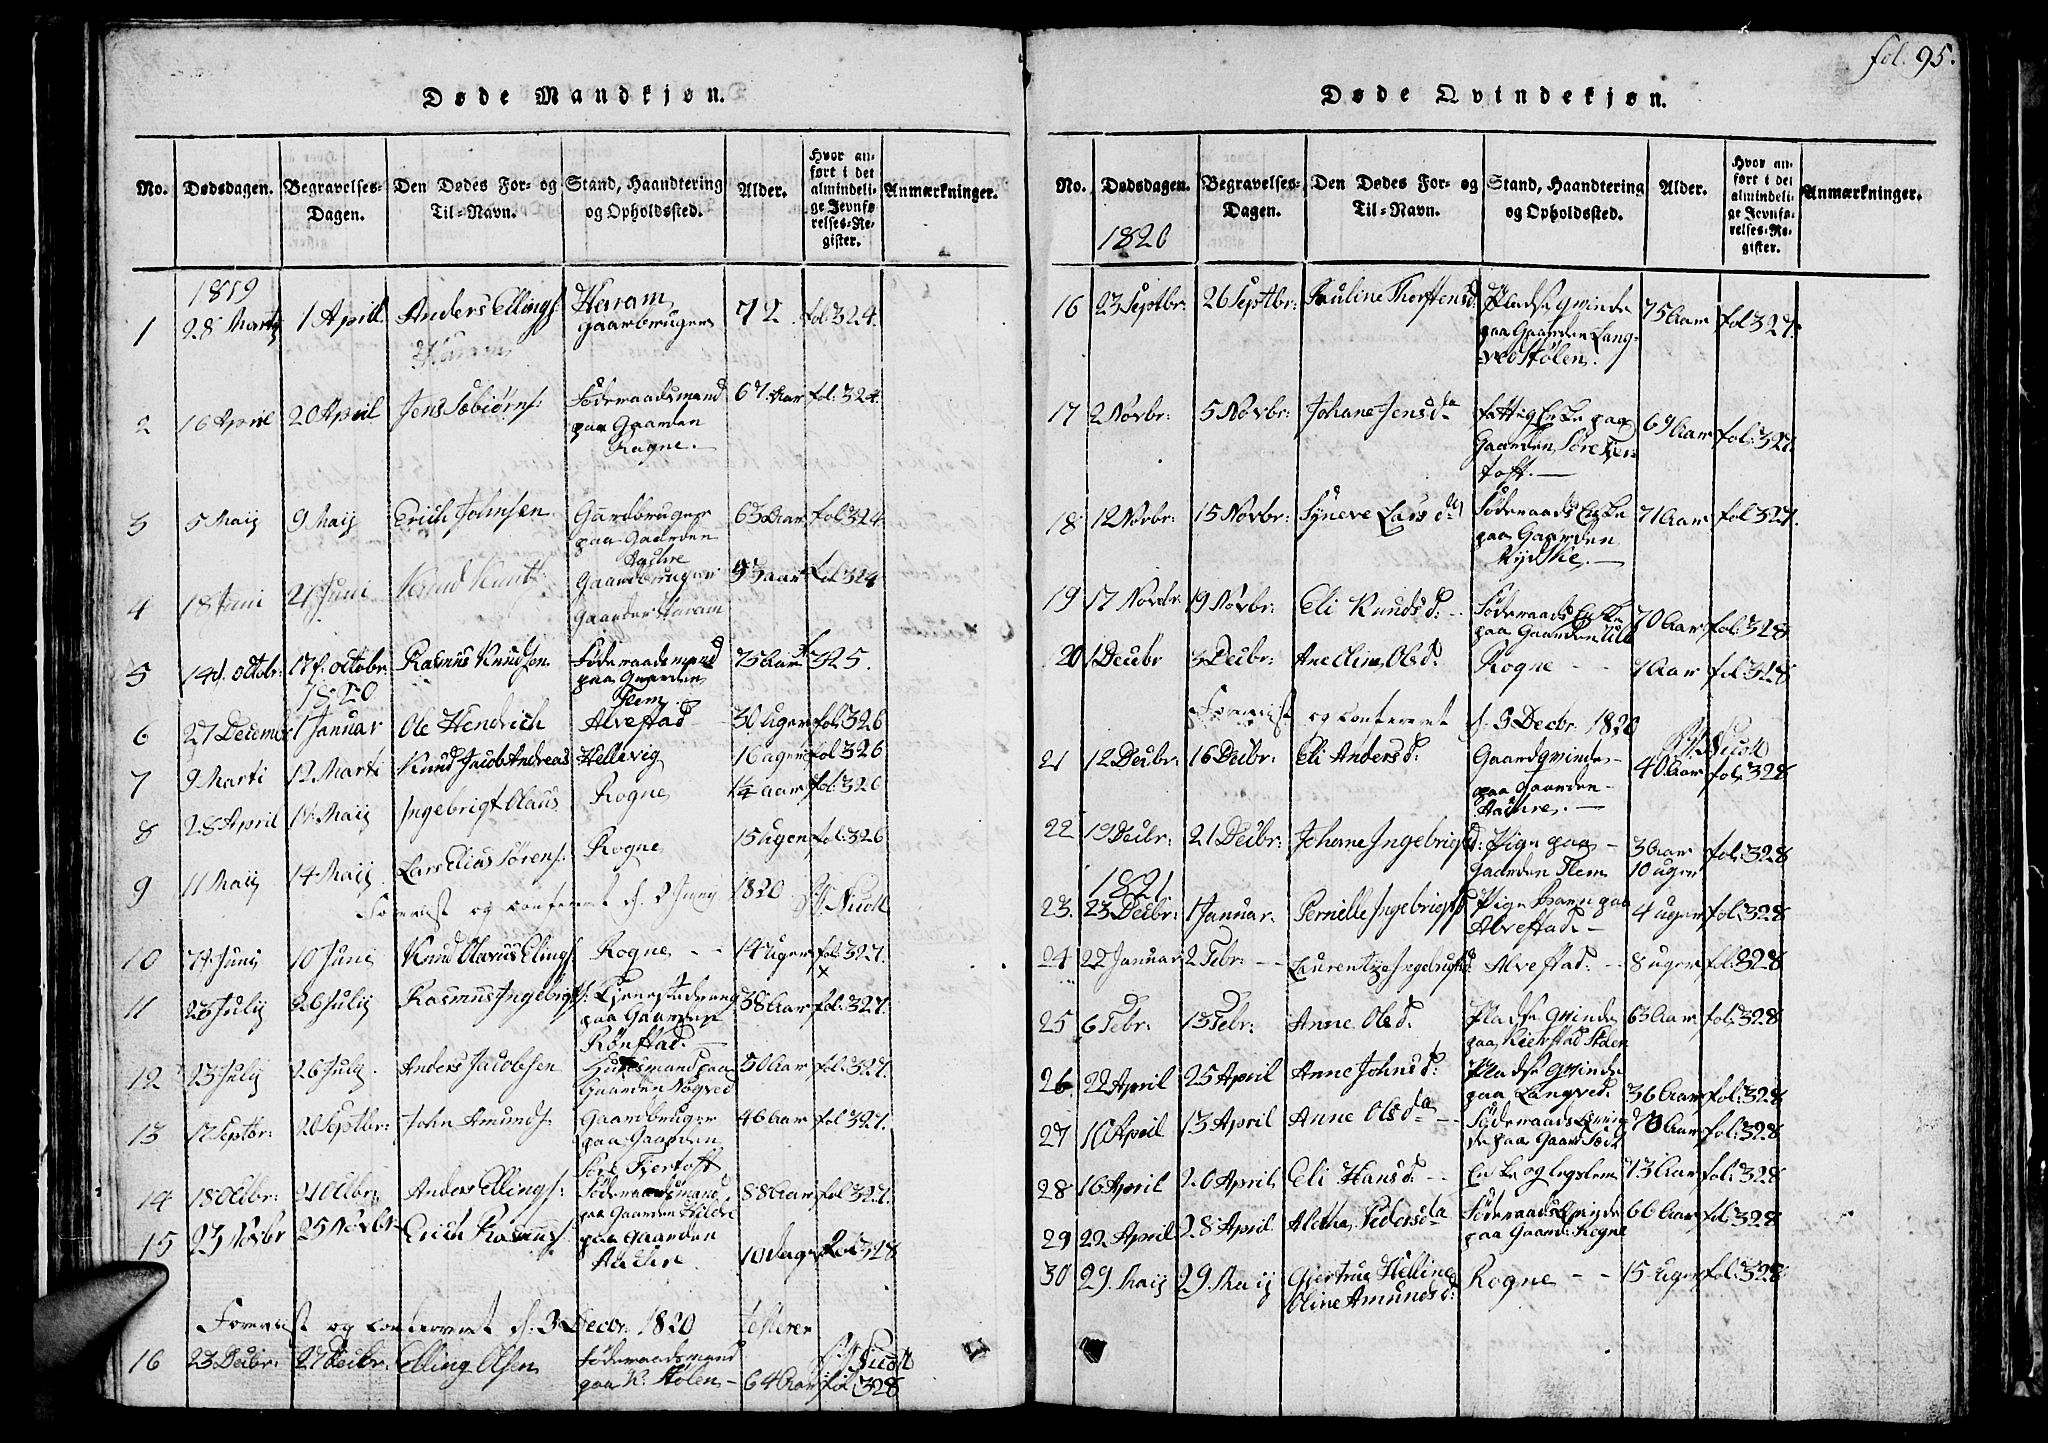 fol. 95.
Døde Mandkjøn.
No. Dødsdagen. Begravelses-Dagen. Den Dødes For- og Til-Navn. Stand, Haandtering og Opholdssted. Alder. Hvor anført i det almindelige Jevnførelses-Register. Anmærkninger.
1819
1 28 Martij 1 April Anders Ellings. Haram Gaardbruger 72 fol: 324.
Haram
2 16 April 20 April Jens Sæbiørns: Føderaadsmand 67 Aar fol: 324.
paa Gaarden
Rogne.
3 5 Maij 9 Maij Erich Johnsen Gaardbruger 63 Aar fol 324
paa Gaarden
Hauhre
4 18 Juni 21 Juni Knud Knuts: Gaardbruger 93 aar fol 324
Gaarden Haram
5 14 octobr: 17 octobr. Rasmus Knudsøn Føderaadsmand 75 Aar f 325.
paa Gaarden
Flem.
1820
6 27 December 1 Januar Ole Hendrich Alvestad 30 Uger fol: 326
7 9 Marti 12 Marti Knud Jacob Andreas Hellevig 16 ager fol 326
8 28 April 1 Maij Ingebrigt Olaus Rogne 1¼ aar fol 326
9 11 Maij 14 Maij Lars Elias Sørens. Rogne 15 Ugen fol: 326
Forevist og Confereret d. 2 Junij 1820
10 7 Junij 10 Juni Knud Olavus Elings. Rogne 14 Uger fol: 327.
11 23 Julij 26 Julij Rasmus Ingebrigts: 38 Aar fol: 327.
paa Gaarden
Rønstad.
12 23 Julij 26 Julij Anders Jacobsen Huusmand paa 50 Aar fol: 327.
Gaarden Nogved
13 17 Septbr: 20 Septbr: John Amunds. Gaardbruger 46 Aar fol 327.
paa Gaarden
Søre Fjertoft
14 18 Octbr: 21 Octbr: Anders Ellings: Føderaadsmand 88 Aar fol 327.
paa Gaarden Kildre
15 23 Novbr 25 Novbr Erich Rasmus. paa Gaarden 10 dage fol 328
Hauhre
Forevist og Confereret d: 3 Decbr: 1820
16 23 Decbr: 27 Decbr: Elling Olsen Føderaadsmand
paa K. Stølen 64 Aar fol 328
Døde Qvindekjøn.
No. Dødsdagen. Begravelses-Dagen. Den Dødes For- og Til-Navn. Stand, Haandtering og Opholdssted. Alder. Hvor anført i det almindelige Jevnførelses-Register. Anmærkninger.
1820
16 23 Septbr: 26 Septbr: Pauline Thorstensd. Pladsequinde 75 Aar fol 327.
paa Gaarden Lang-
ved Stølen.
17 2 Novbr: 5 Novbr: Johane Jensda fattig Enke paa 69 Aar fol: 327.
Gaarden Søre Fjer-
toft.
18 12 Novbr: 15 Novbr: Syneve Larsda Føderaads Enke 71 Aar fol 327.
paa Gaarden
Mydske.
19 17 Novbr: 19 Novbr: Eli Knudsd: Føderaads Enke 70 Aar fol: 328
paa Gaarden Ulle
20 1 Decbr 3 Decbr: Ane Elina Olsd: Rogne 7 Aar fol 328
Forevist og Confereret d. 3 Decbr: 1820
21 12 Decbr: 16 Decbr: Eli Andersd: Gaardqvinde 40 Aar fol: 328
paa Gaarden
Hauhre.
22 19 Decbr: 21 Decbr: Johanne Ingebrigtsd: Pige paa 3 Aar fol: 328
Gaarden Flem 10 uger
1821
23. 23 Decbr: 1 Januar. Pernille Ingebrigtsd Pige Barn paa 4 uger fol: 328
Alvestad.
24 22 Januar 2 Febr: Laurentze Ingebrigtsd. Alvestad. 8 uger fol: 328
25 6 Febr: 13 Febr: Anne Olsd. Pladseqvinde 63 Aar fol: 328
paa Kierstad Stølen
26 22 April 25 April Anne Johnsd: Pladse qvinde 36 Aar fol: 328
paa Langved.
27 10 April 13 April Anne Olsda Føderaads Qvin- 70 Aar fol: 328
de paa Gaard
28 16 April 20 April Eli Hansd: Enke og Legslem 73 Aar fol: 328
29 22 April 28 April Aletha Pedersda Føderaads Qvinde 66 Aar fol: 328
paa Gaard: Rogne
30 29. Maij 29. Maij Giertrue Helline Rogne 15 Uger fol: 328
Oline Amundsd: